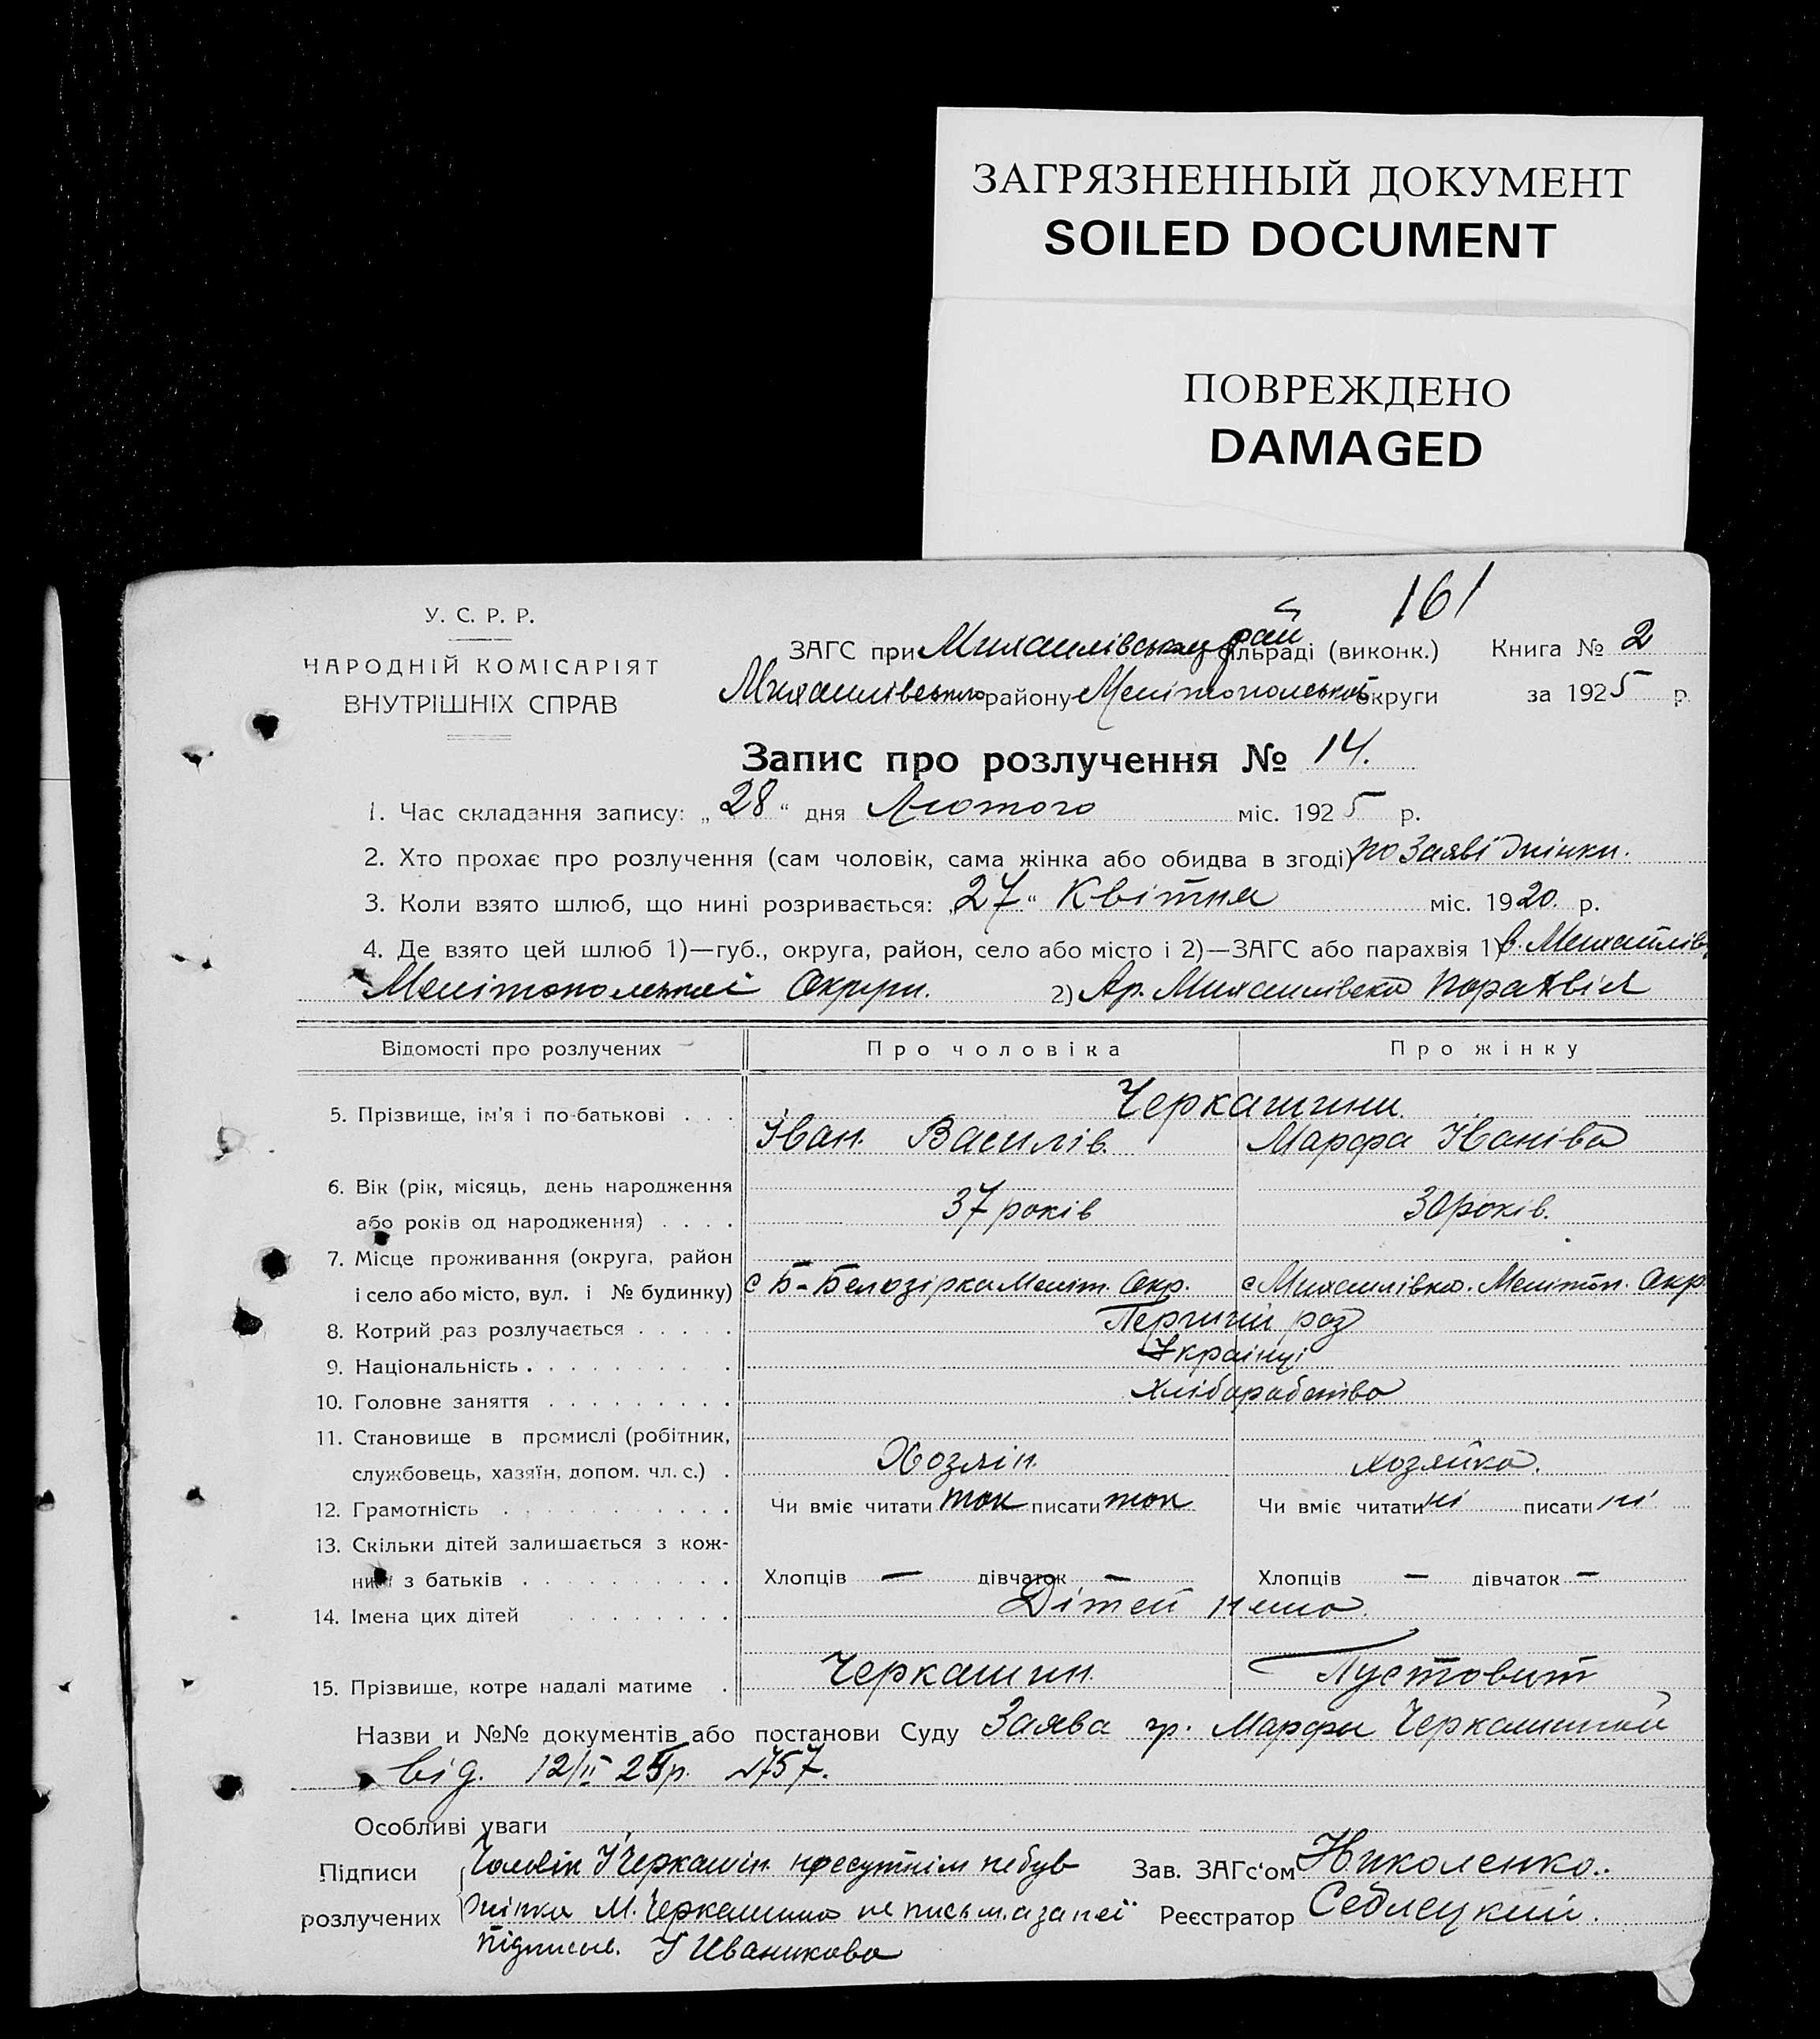 ЗАГРЯЗНЕННЫЙ ДОКУМЕНТ
SOILED DOCUMENT
ПОВРЕЖДЕНО
DAMAGED
161
У. С. Р. Р.
НАРОДНІЙ КОМІСАРІЯТ
ВНУТРІШНІХ СПРАВ
ЗАГС при Михаилівському рай сільраді (виконк.) Книга № 2
Михаилівського району Мелітопольської округи за 1925 р.
Запис про розлучення № 14.
1. Час складання запису: „28“ дня Лютого міс. 1925 р.
2. Хто прохає про розлучення (сам чоловік, сама жінка або обидва в згоді) по заяві жінки.
3. Коли взято шлюб, що нині розривається: „27“ Квітня міс. 1920. р.
4. Де взято цей шлюб 1)—губ., округа, район, село або місто і 2)—ЗАГС або парахвія 1) в. Михайлів
Мелітопольської Округи. 2) Ар. Михаилівска парахвія
Відомості про розлучених Про чоловіка Про жінку
5. Прізвище, ім'я і по-батькові . . . Черкашини.
Іван Василів. Марфа Іванівна
6. Вік (рік, місяць, день народження
або років од народження) . . . . 37 років 30 років.
7. Місце проживання (округа, район
і село або місто, вул. і № будинку) с Б-Белозірка Меліт. Окр. с Михаилівка. Мелітоп. Окр.
8. Котрий раз розлучається . . . . . Перший раз
9. Національність . . . . . . . . . Українці
10. Головне заняття . . . . . . . . . Хліборобство
11. Становище в промислі (робітник,
службовець, хазяїн, допом. чл. с.) . Хозяін. хозяйка.
12. Грамотність . . . . . . . . . . Чи вміє читати так писати так Чи вміє читати ні писати ні
13. Скільки дітей залишається з кож-
ним з батьків . . . . . . . . . . Хлопців — дівчаток — Хлопців — дівчаток —
14. Імена цих дітей . . . . . . . Дітей нема.
15. Прізвище, котре надалі матиме . Черкашин. Пустовит
Назви и №№ документів або постанови Суду Заява гр. Марфи Черкашиной
від. 12/II 25р. №757.
Особливі уваги
Підписи Чоловік І Черкашін. пресутнім не був Зав. ЗАГс'ом Николенко.
розлучених Жінка М. Черкашина не письм. а за неї Реєстратор Седлецкий.
підписав. І Иваникова